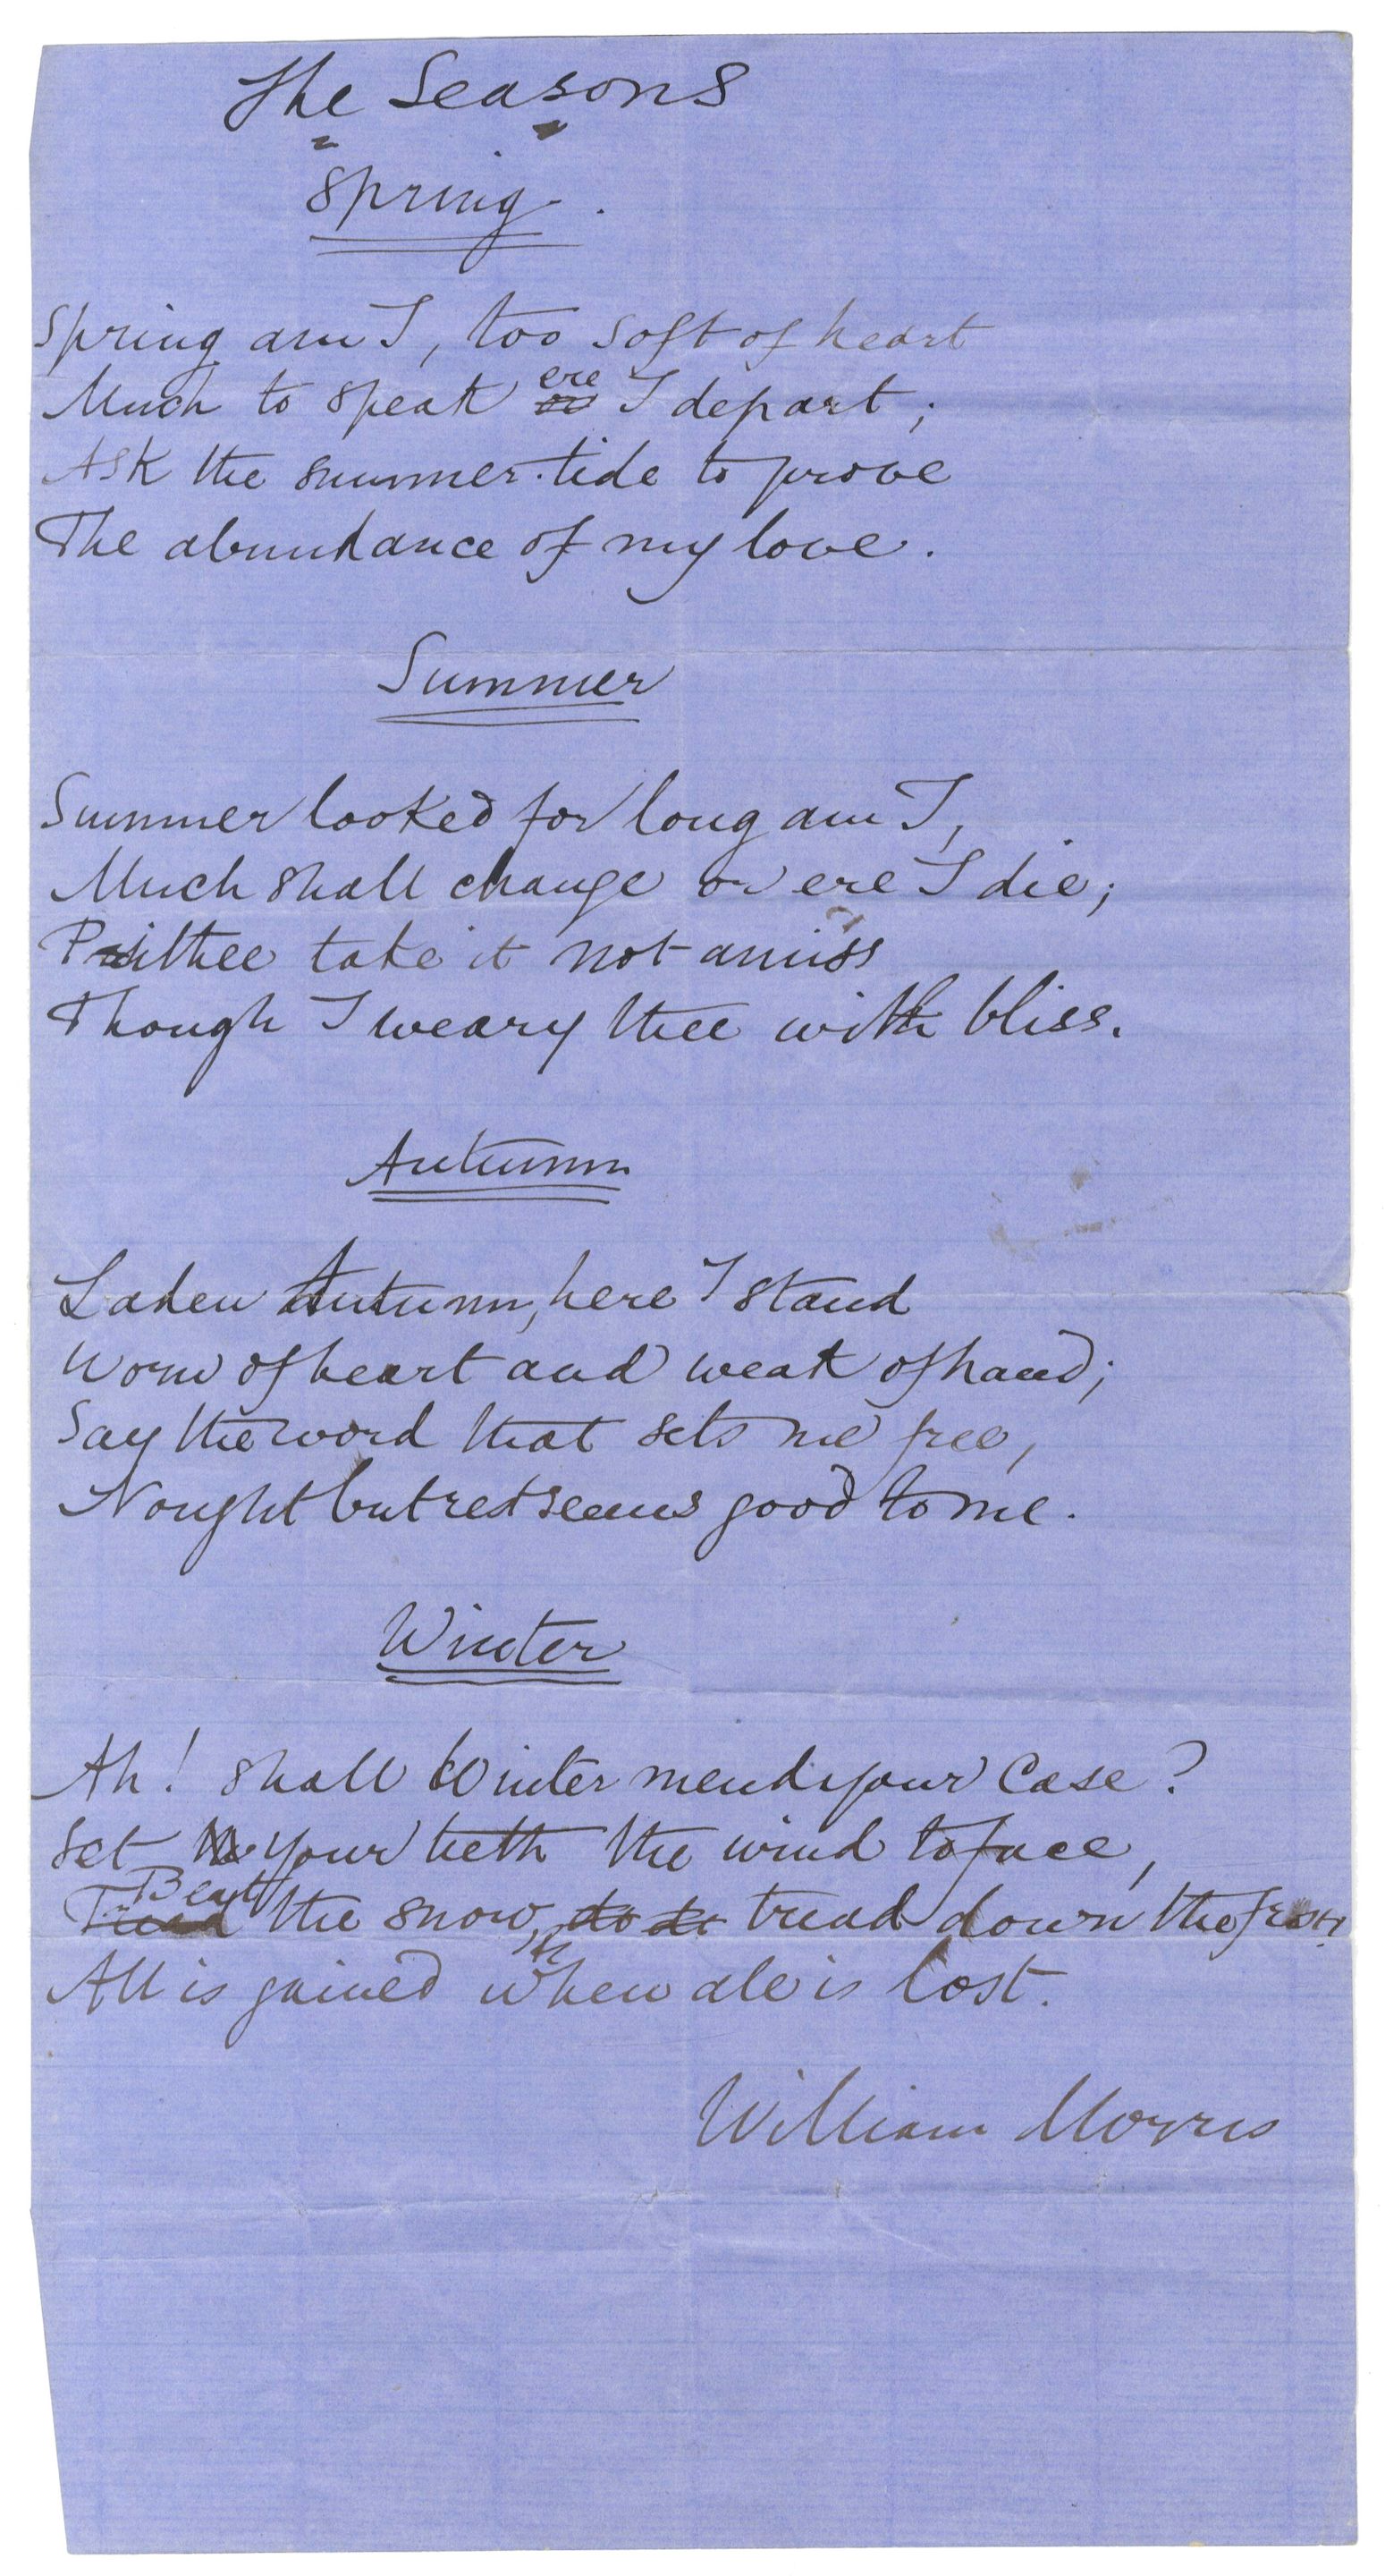 The Seasons
Spring.
Spring am I, too soft of heart
Much to speak ere I depart;
Ask the summer-tide to prove
The abundance of my love.
Summer
Summer looked for long am I,
Much shall change or ere I die;
Prithee take it not amiss
Though I weary thee with bliss.
Autumn
Laden Autumn, here I stand
Worn of heart and weak of hand;
Say the word that sets me free,
Nought but rest seems good to me.
Winter
Ah! shall Winter mend your case?
Set your teeth the wind to face,
Beat the snow, tread down the frost!
All is gained when all is lost.
William Morris